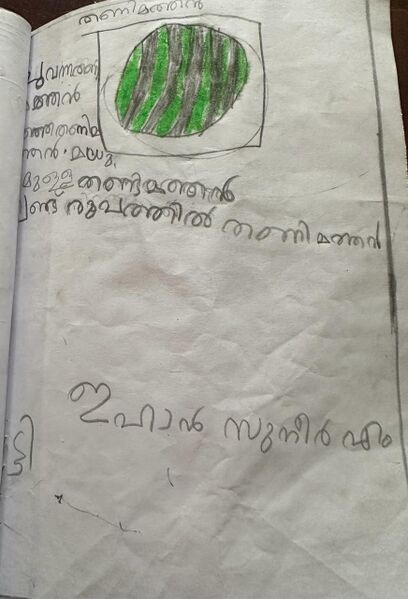 തണ്ണിമത്തൻ
ചുവന്നതണ്ണി
മത്തൻ
മഞ്ഞതണ്ണിമ
ത്തൻ. മധു.
മുള്ള തണ്ണിമത്തൻ
ഉണ്ട രൂപത്തിൽ തണ്ണിമത്തൻ
ഇഹാൻ സുനീർ എം
ട്ടി